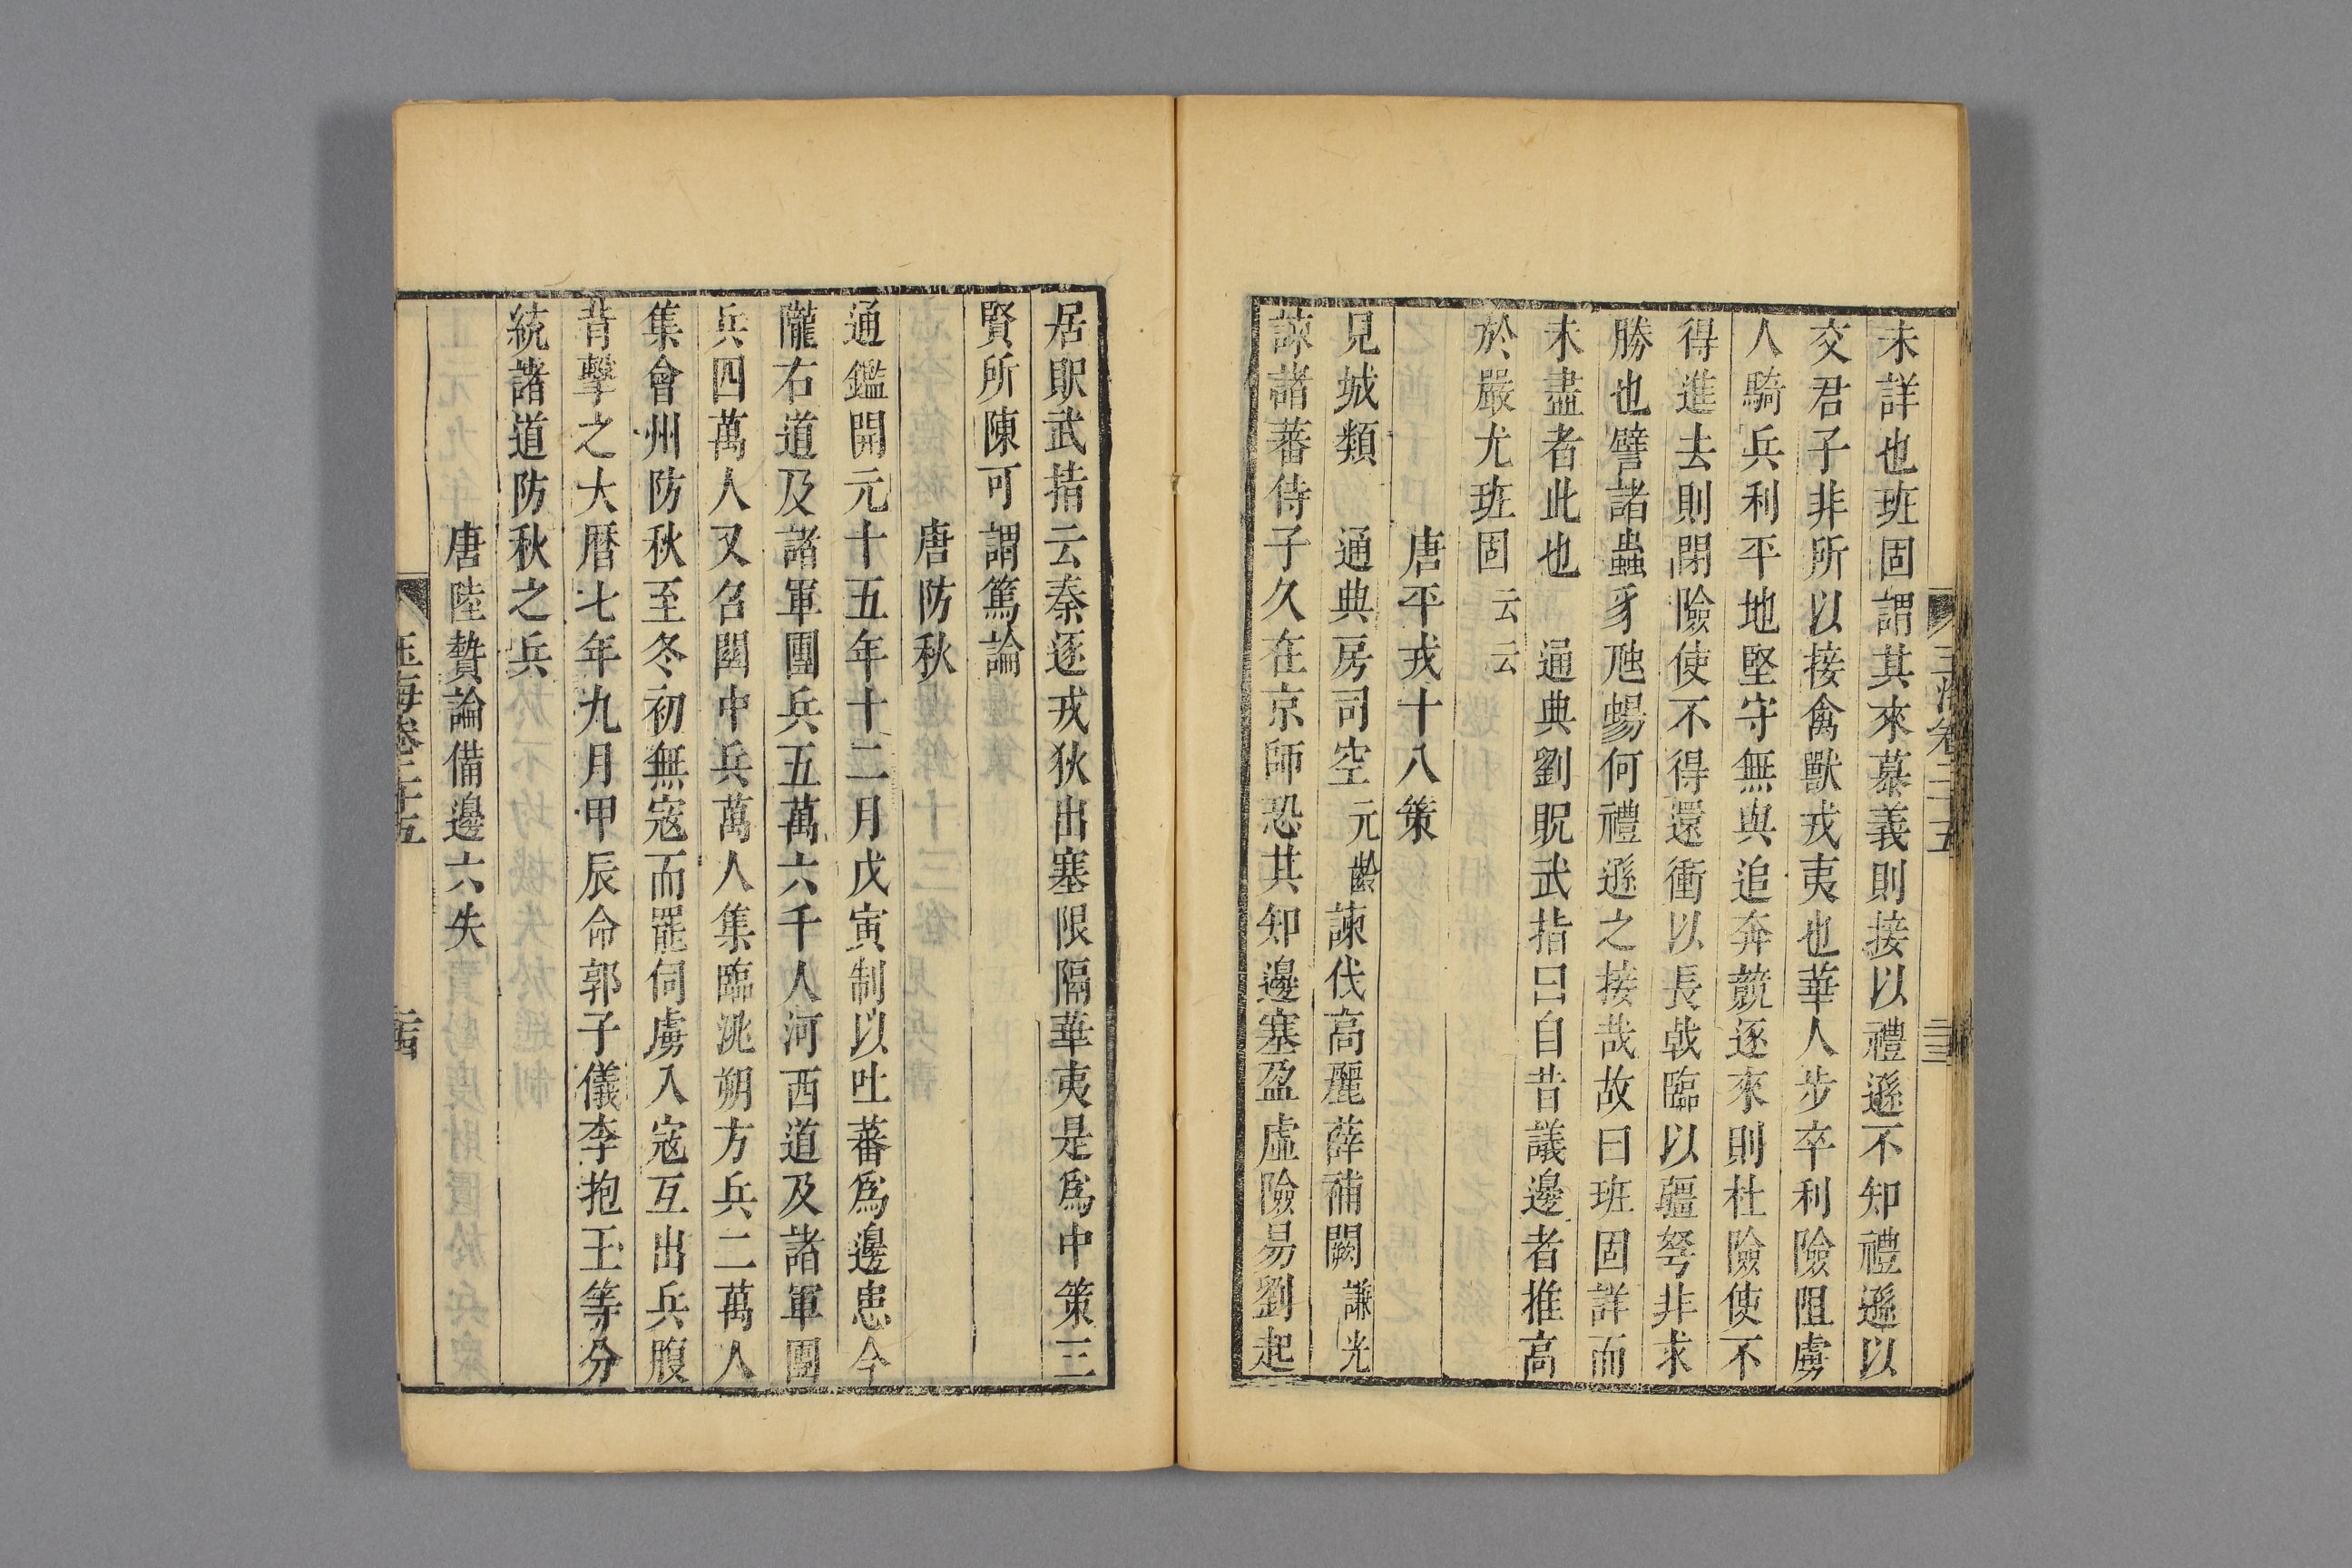 未詳也班固謂其來慕義則接以禮遜不知禮遜以
交君子非所以接禽獸戎夷也華人步卒利險阻虜
人騎兵利平地堅守無與追奔競逐來則杜險使不
得進去則閉險使不得還衝以長戟臨以疆弩非求
勝也譬諸蟲豸虺蜴何禮遜之接哉故曰班固詳而
未盡者此也 通典劉貺武指曰自昔議邊者推高
於嚴尤班固云云
唐平戎十八策
見城類 通典房司空元齡諫伐高麗薛補闕謙光
諫諸蕃侍子久在京師恐其知邊塞盈虛險易劉起
居貺武指云秦逐戎狄出塞限隔華夷是爲中策三
賢所陳可謂篤論
唐防秋
通鑑開元十五年十二月戊寅制以吐蕃爲邊患令
隴右道及諸軍團兵五萬六千人河西道及諸軍團
兵四萬人又召關中兵萬人集臨洮朔方兵二萬人
集會州防秋至冬初無寇而罷伺虜入寇互出兵腹
背擊之大曆七年九月甲辰命郭子儀李抱玉等分
統諸道防秋之兵
唐陸贄論備邊六失
玉海卷二十五